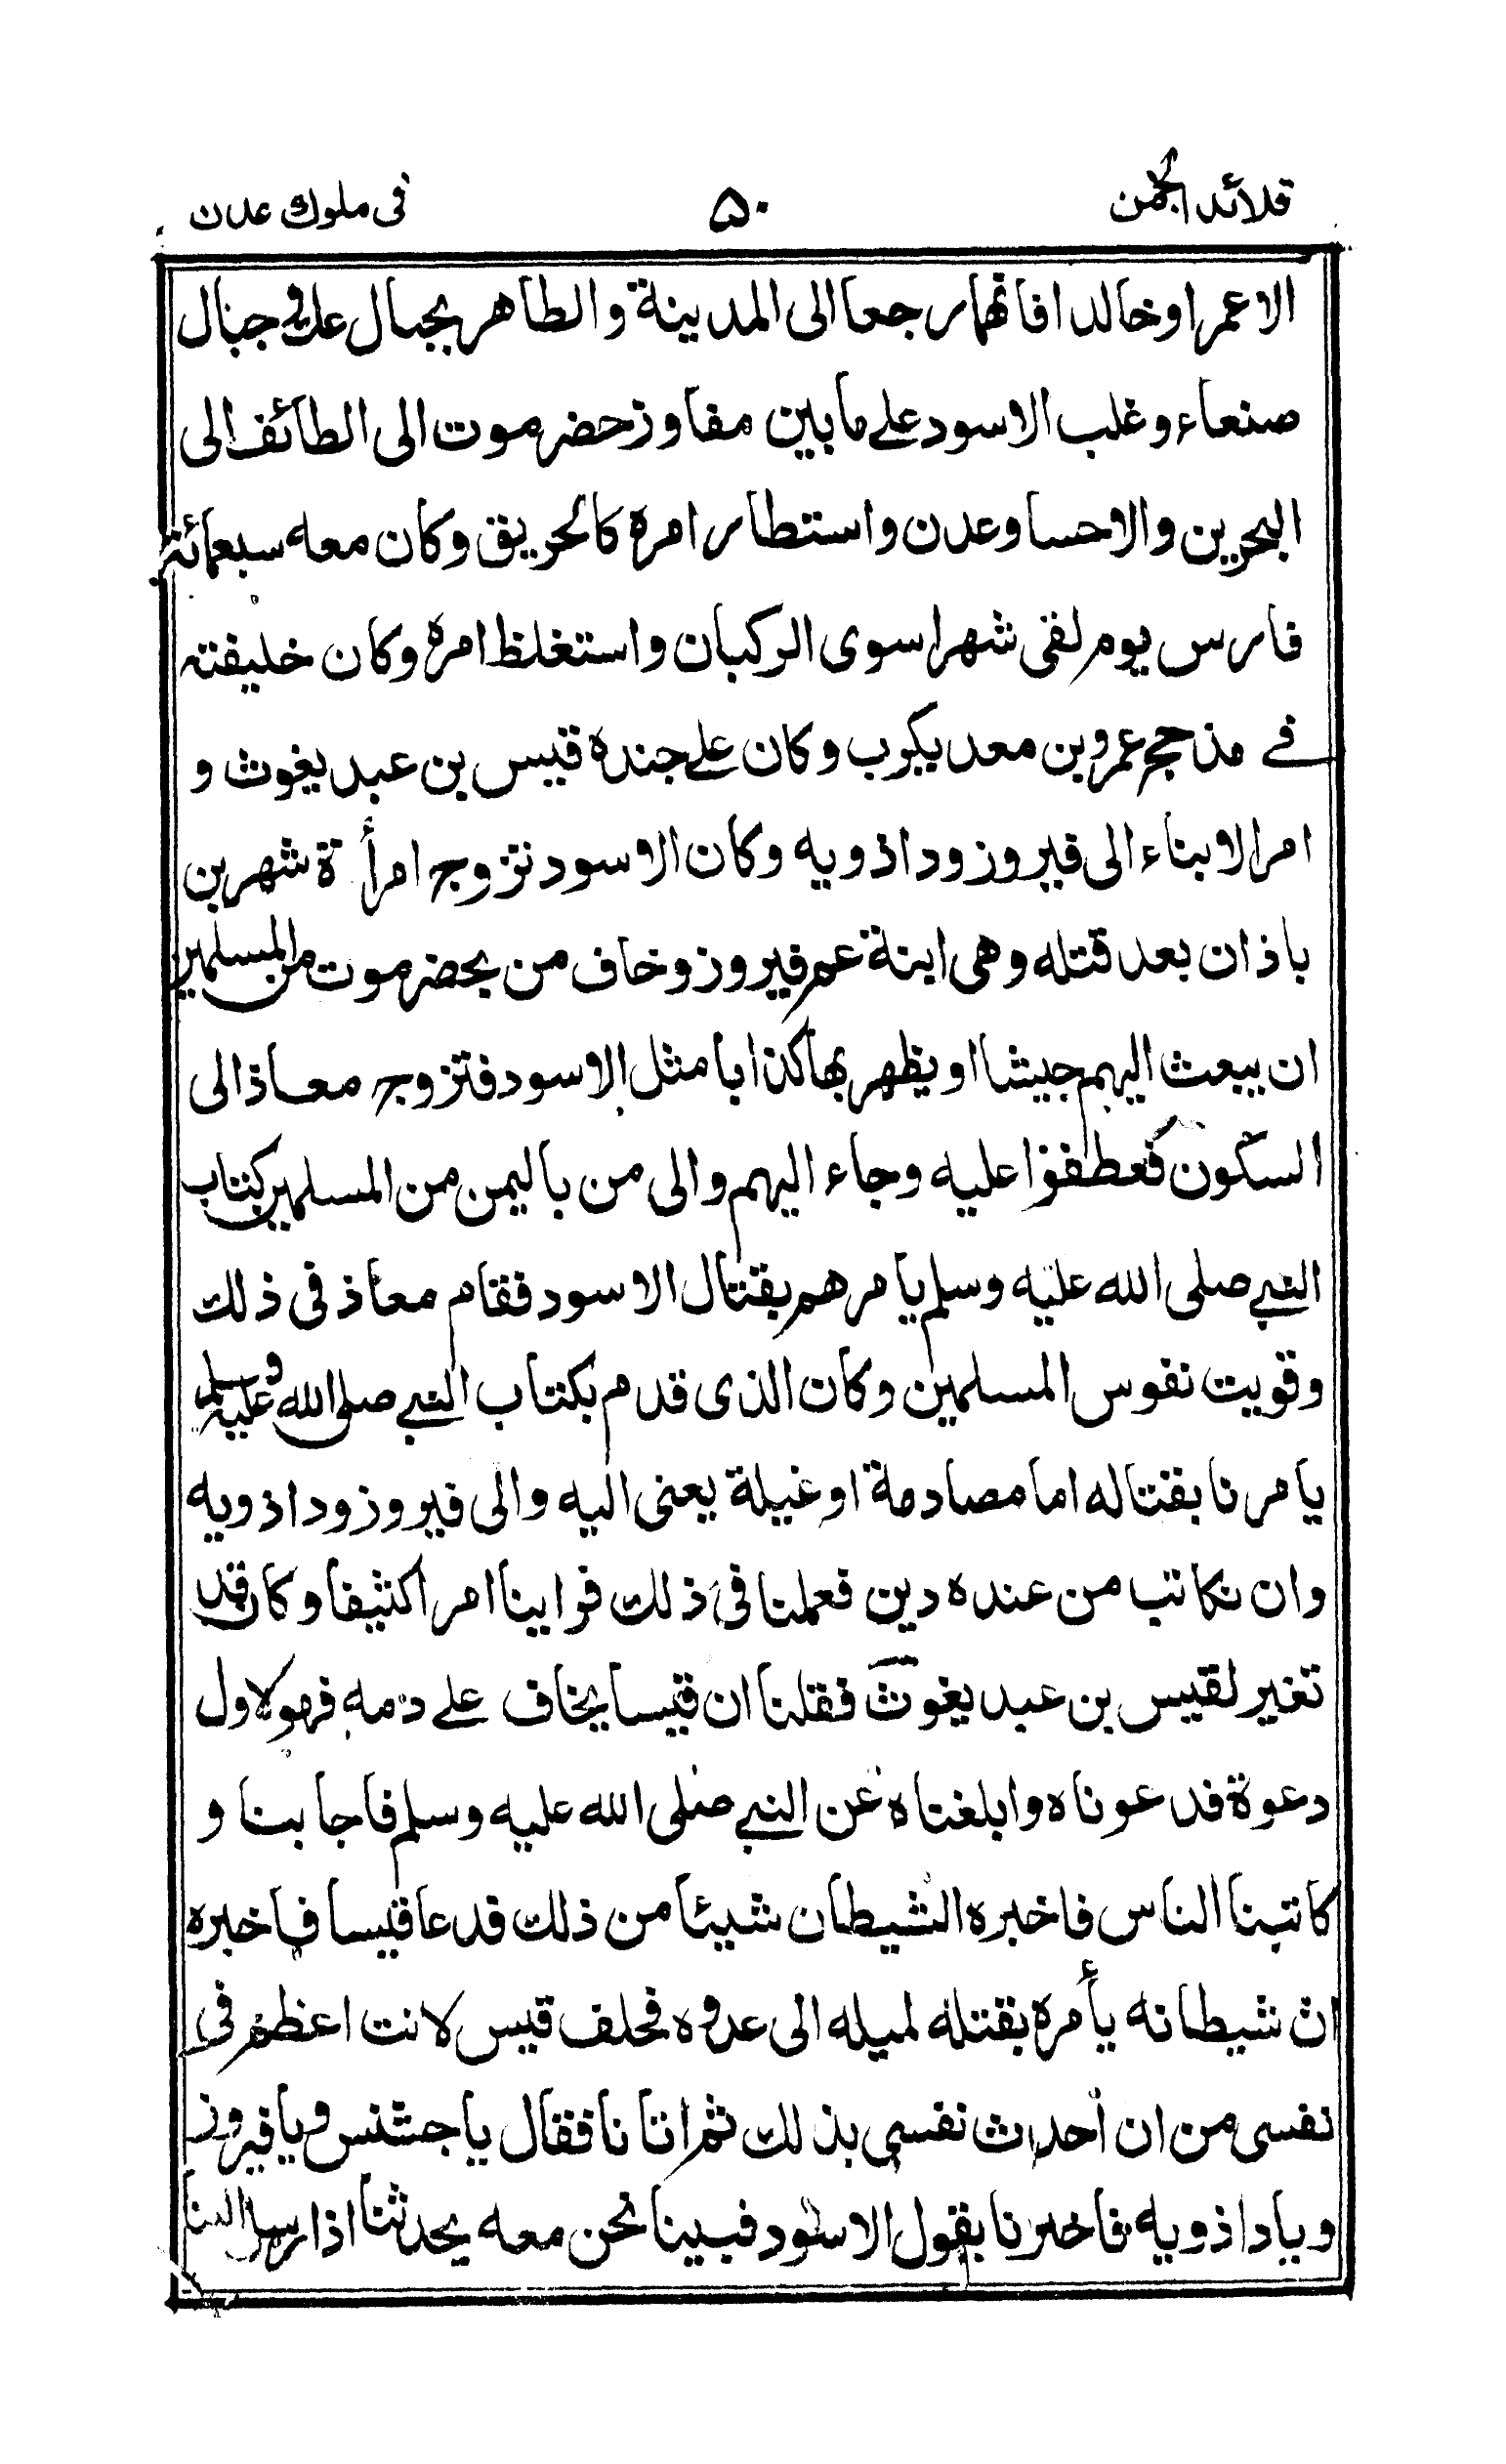 قلائد الجمن ۵۰ فى ملوك عدن
الا عمرا وخالدا فانهما رجعا الى المدينة والطاهر بجبال عك فى جبال
صنعاء وغلب الاسود على ما بين مفاوز حضرموت الى الطائف الى
البحرين والاحسا وعدن واستطار امره كالحريق وكان معه سبعمائة
فارس يوم لقى شهرا سوى الركبان واستغلظ امره وكان خليفته
فى مذحج عمرو بن معديكرب وكان على جنده قيس بن عبد يغوث و
امر الابناء الى فيروز وداذويه وكان الاسود تزوج امرأة شهر بن
باذان بعد قتله وهى ابنة عم فيروز وخاف من بحضرموت من المسلمين
ان يبعث اليهم جيشا او يظهر بها كذابا مثل الاسود فتزوج معاذ الى
السكون فعطفوا عليه وجاء اليهم والى من باليمن من المسلمين كتاب
النبى صلى الله عليه وسلم يامرهم بقتال الاسود فقام معاذ فى ذلك
وقويت نفوس المسلمين وكان الذى قدم بكتاب النبى صلى الله عليه وسلم
يامرنا بقتاله اما مصادمة او غيلة يعنى اليه والى فيروز وداذويه
وان نكاتب من عنده دين فعلمنا فى ذلك فراينا امرا كثيفا وكان قد
تغير لقيس بن عبد يغوث فقلنا ان قيسا يخاف على دمه فهو لاول
دعوة فدعوناه وابلغناه عن النبى صلى الله عليه وسلم فاجابنا و
كاتبنا الناس فاخبره الشيطان شيئا من ذلك فدعا قيسا فاخبره
ان شيطانه يأمره بقتله لميله الى عدوه فحلف قيس لانت اعظم فى
نفسى من ان أحدث نفسى بذلك ثم اتانا فقال يا جشنس ويا فيروز
ويا داذويه فاخبرنا بقول الاسود فبينا نحن معه يحدثنا اذ ارسل الينا